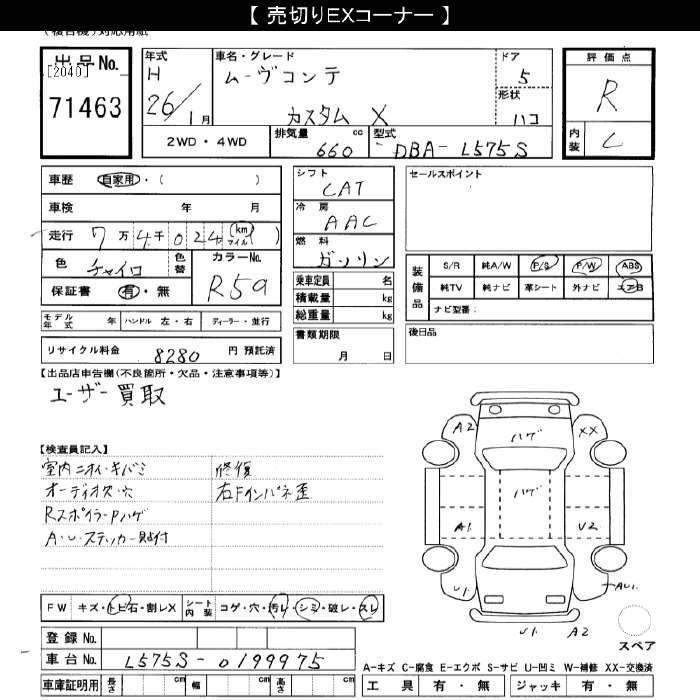 【 売切りEXコーナー 】
出品No.
[2040]
71463
年式
H
26/1月
車名・グレード
ムーヴコンテ
カスタム X
ドア
5
形状
ハコ
評価点
R
内装
C
2WD・4WD
排気量
660 cc
型式
DBA- L575S
車歴 自家用・( )
車検 年 月
走行 7万4千024 (km マイル)
色 チャイロ
色替
カラーNo.
R59
保証書 有・無
モデル年式 年
ハンドル 左・右
ディーラー・並行
リサイクル料金 8280 円 預託済
シフト
CAT
冷房
AAC
燃料
ガソリン
乗車定員 名
積載量 kg
総重量 kg
書類期限
月 日
セールスポイント
装備品
S/R 純A/W P/S P/W ABS
純TV 純ナビ 革シート 外ナビ エアB
ナビ型番:
後日品
【出品店申告欄(不良箇所・欠品・注意事項等)】
ユーザー買取
【検査員記入】
室内ニオイ・キバミ
オーディオス・穴
RスポイラーPハゲ
A・U・ステッカー貼付
修復
右Fインパネ歪
A2
ハゲ
XX
ハゲ
A1.
U2
U1.
AU1.
U1.
A2
スペア
FW キズ・トビ石・割レX
シート内装 コゲ・穴・汚レ・シミ・破レ・スレ
登録No.
車台No. L575S-0199975
車庫証明用 長さ cm 幅 cm 高さ cm
A-キズ C-腐食 E-エクボ S-サビ U-凹ミ W-補修 XX-交換済
工具 有・無 ジャッキ 有・無